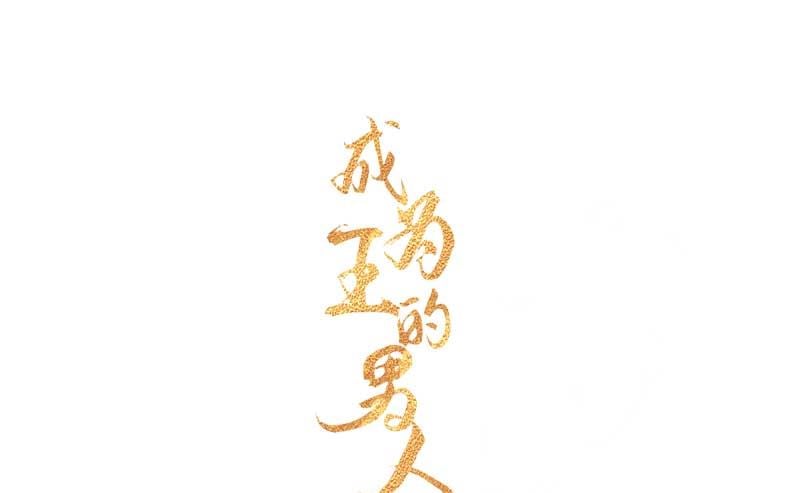 成为王的男人